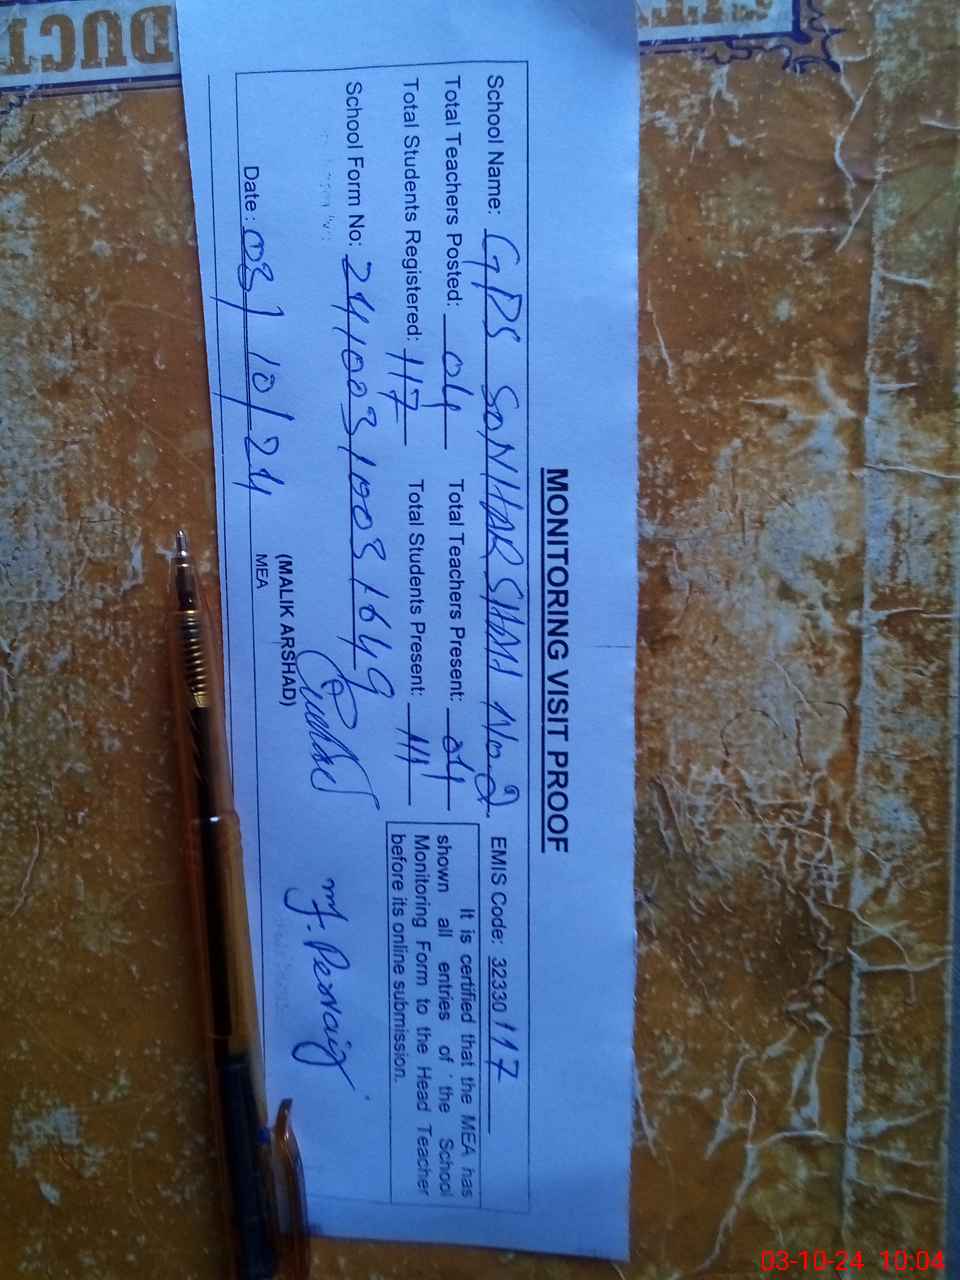 MONITORING VISIT PROOF
School Name: GPS SONHAR SHAH No.2 EMIS Code: 32330117
Total Teachers Posted: 04 Total Teachers Present: 04
Total Students Registered: 117 Total Students Present: 111
It is certified that the MEA has
shown all entries of the School
Monitoring Form to the Head Teacher
before its online submission.
School Form No: 241003/003/649
(MALIK ARSHAD)
MEA
Date: 03/10/24
M.J. Pervaiz
DUCT
03-10-24 10:04